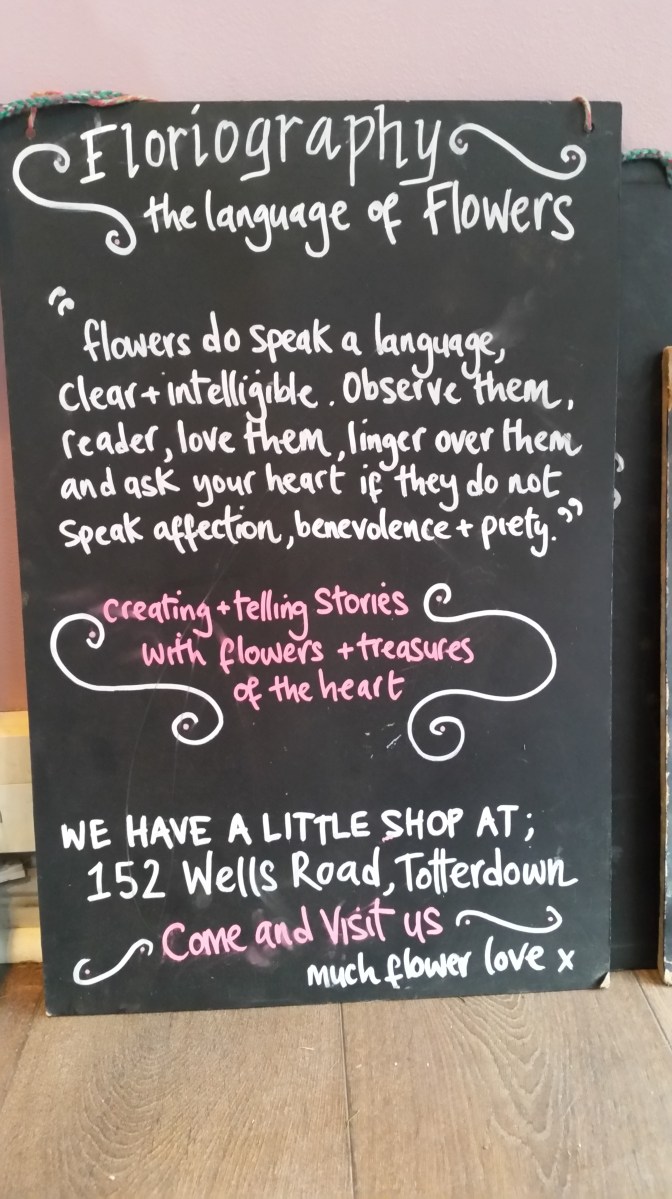 Floriography
the language of Flowers
“ flowers do speak a language,
clear + intelligible. Observe them,
reader, love them, linger over them
and ask your heart if they do not
speak affection, benevolence + piety.”
creating + telling Stories
with flowers + treasures
of the heart
WE HAVE A LITTLE SHOP AT;
152 Wells Road, Totterdown
Come and Visit us
much flower love x